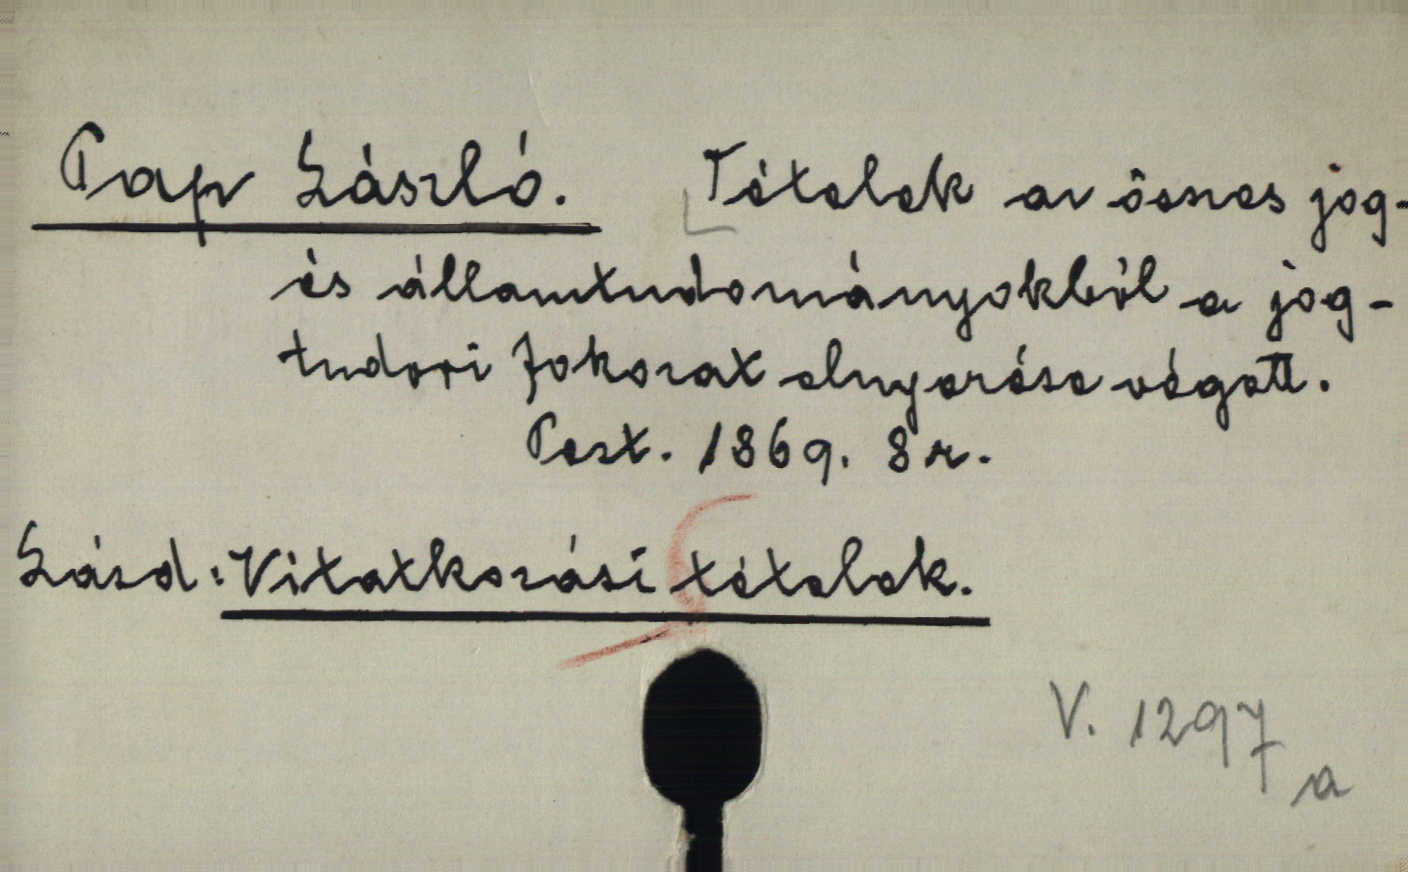 Pap László. Tételek az összes jog-
és államtudományokból a jog-
tudori fokozat elnyerése végett.
Pest. 1869. 8r.
Lásd: Vitatkozási tételek.
V. 1297
a